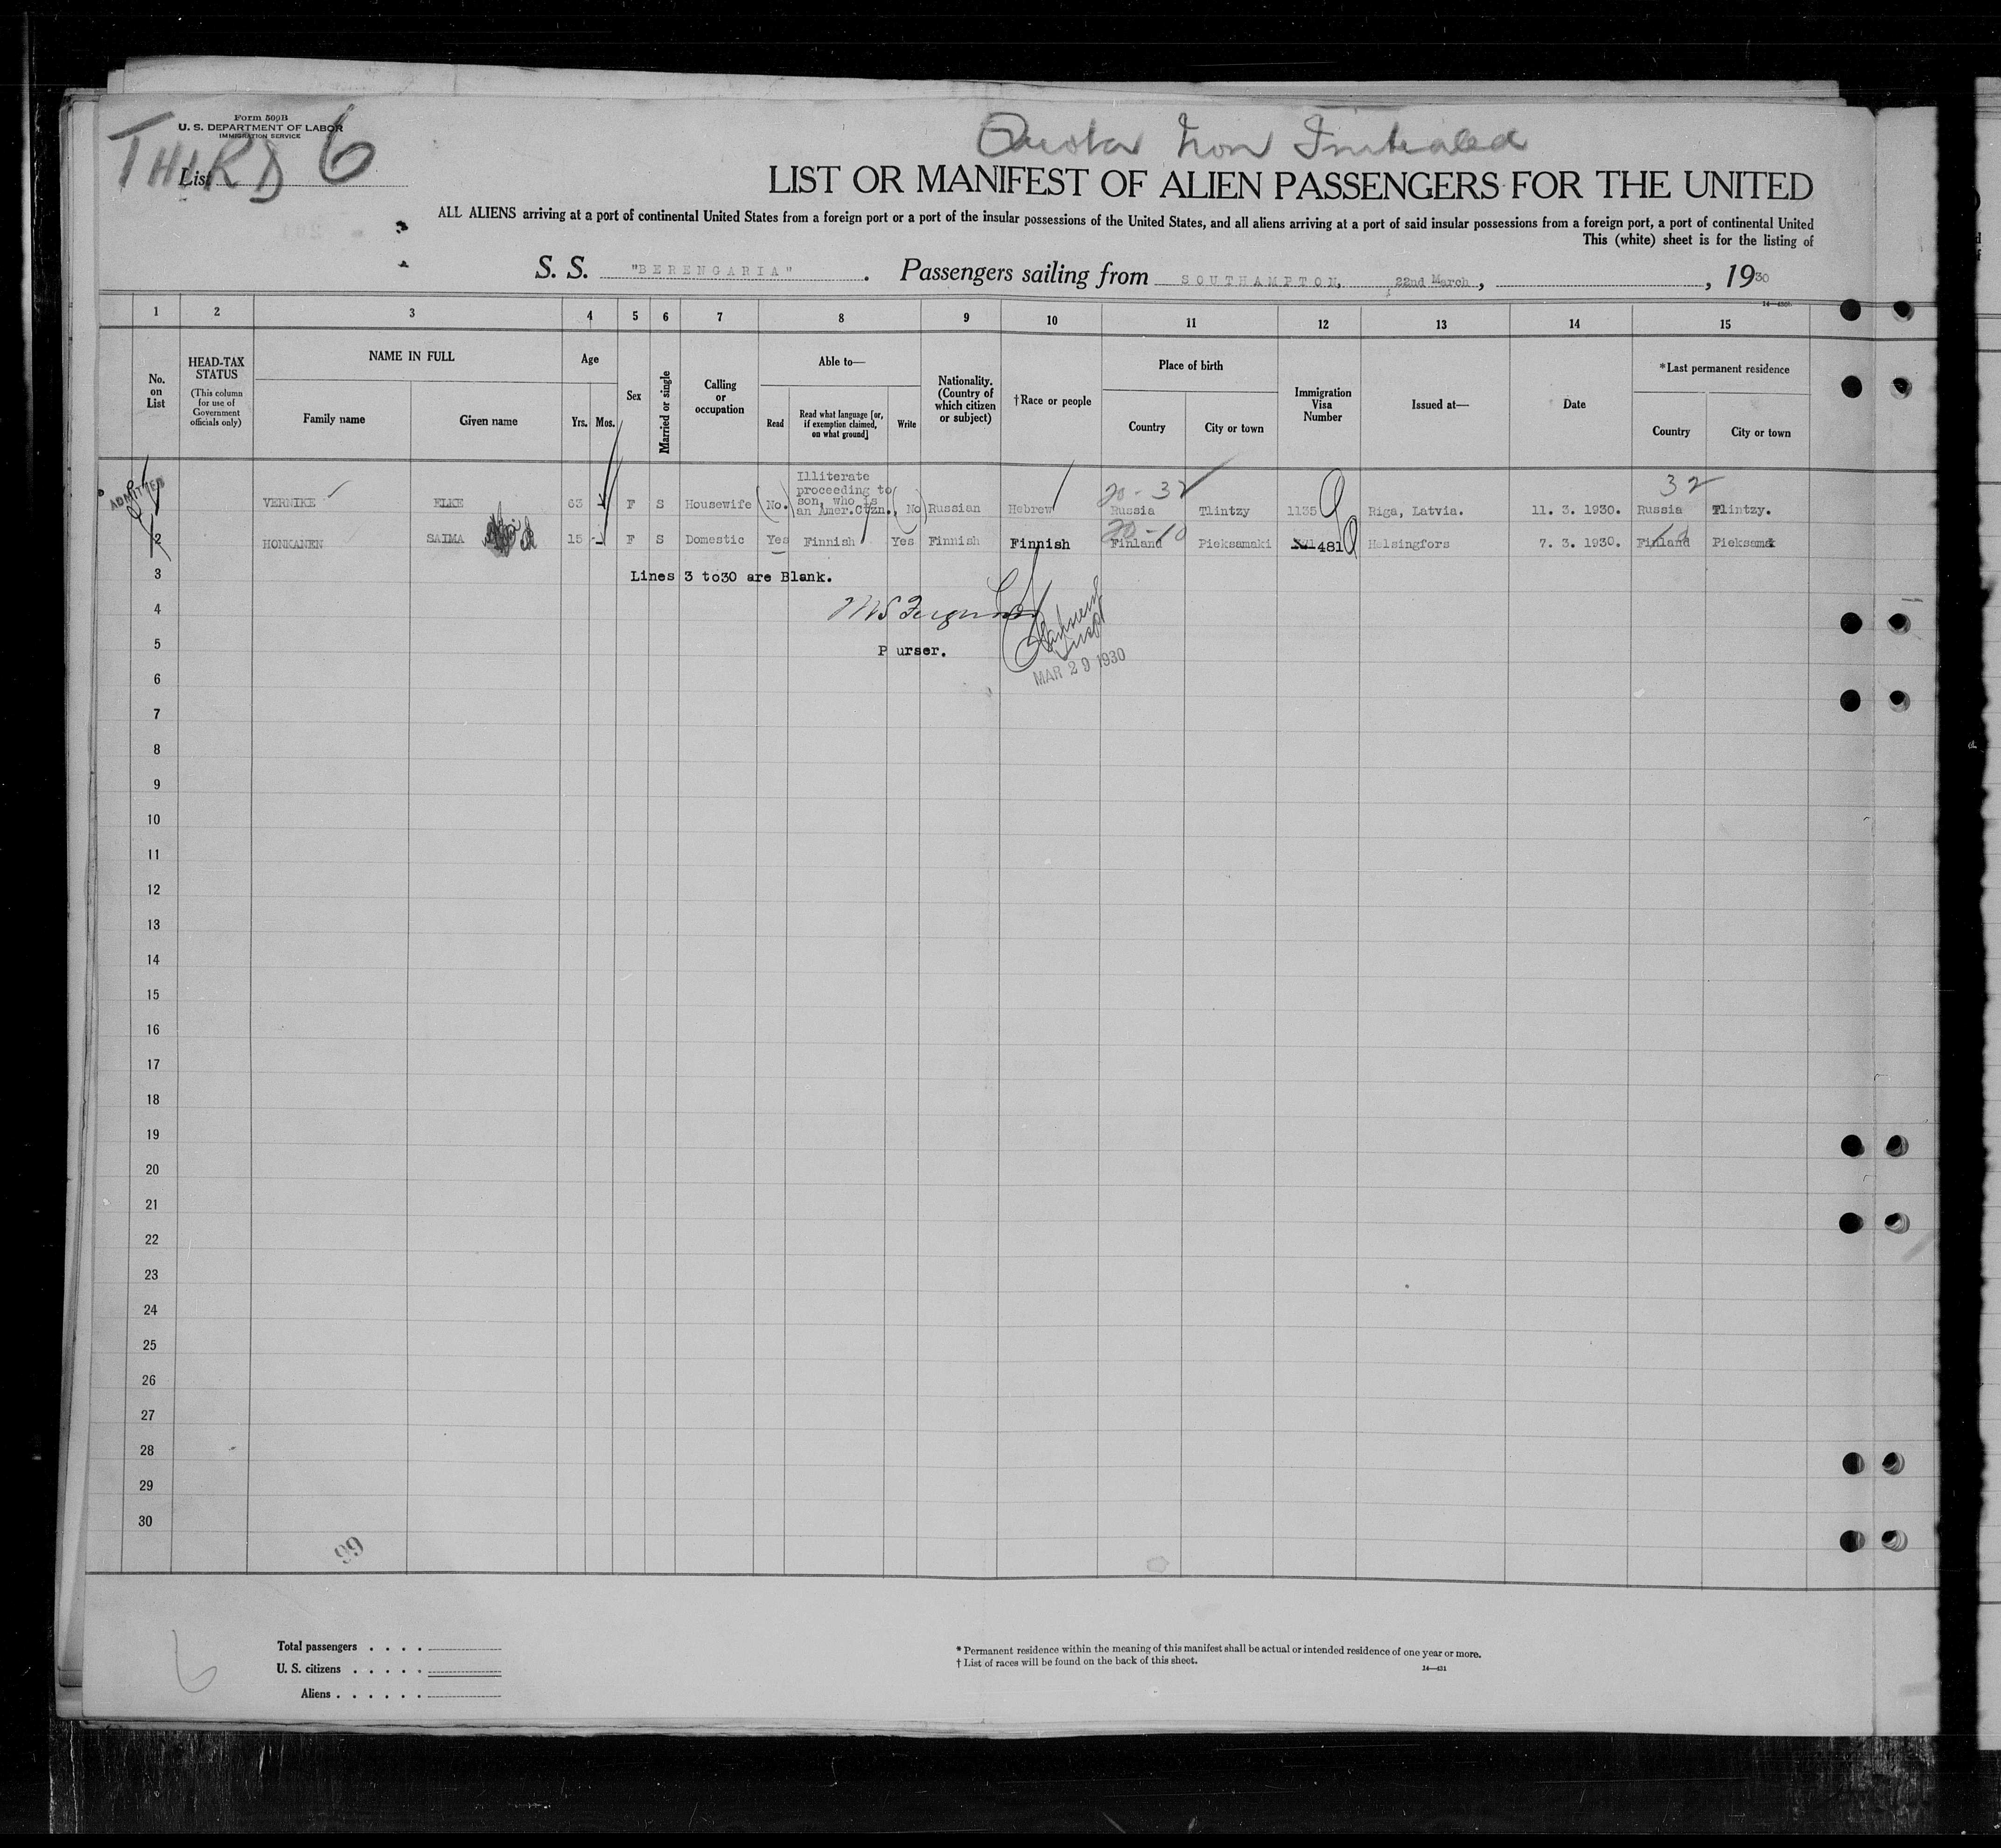 Form 500B
U. S. DEPARTMENT OF LABOR
IMMIGRATION SERVICE
THIRD 6
List
Quota Non
LIST OR MANIFEST OF ALIEN PASSENGERS FOR THE UNITED
ALL ALIENS arriving at a port of continental United States from a foreign port or a port of the insular possessions of the United States, and all aliens arriving at a port of said insular possessions from a foreign port, a port of continental United
This (white) sheet is for the listing of
S. S. "BERENGARIA". Passengers sailing from SOUTHAMPTON, 22nd March, , 1930
1 2 3 4 5 6 7 8 9 10 11 12 13 14 15
No. on List
HEAD-TAX STATUS
(This column for use of Government officials only)
NAME IN FULL
Family name Given name
Age
Yrs. Mos.
Sex
Married or single
Calling or occupation
Able to—
Read
Read what language [or, if exemption claimed, on what ground]
Write
Nationality. (Country of which citizen or subject)
†Race or people
Place of birth
Country City or town
Immigration Visa Number
Issued at—
Date
*Last permanent residence
Country City or town
ADMITTED
20-32 32
1 VERNIKE ELKE 63 F S Housewife No. Illiterate proceeding to son, who is an Amer.Ctzn. No Russian Hebrew Russia Tlintzy 1135 Riga, Latvia. 11. 3. 1930. Russia Tlintzy.
20-10 10
2 HONKANEN SAIMA 15 - F S Domestic Yes Finnish Yes Finnish Finnish Finland Pieksamaki 481 Helsingfors 7. 3. 1930. Finland Pieksama
3 Lines 3 to30 are Blank.
4
5 P urser.
MAR 29 1930
6
7
8
9
10
11
12
13
14
15
16
17
18
19
20
21
22
23
24
25
26
27
28
29
30
99
6
Total passengers . . . .
U. S. citizens . . . . .
Aliens . . . . . .
* Permanent residence within the meaning of this manifest shall be actual or intended residence of one year or more.
† List of races will be found on the back of this sheet.
14—431